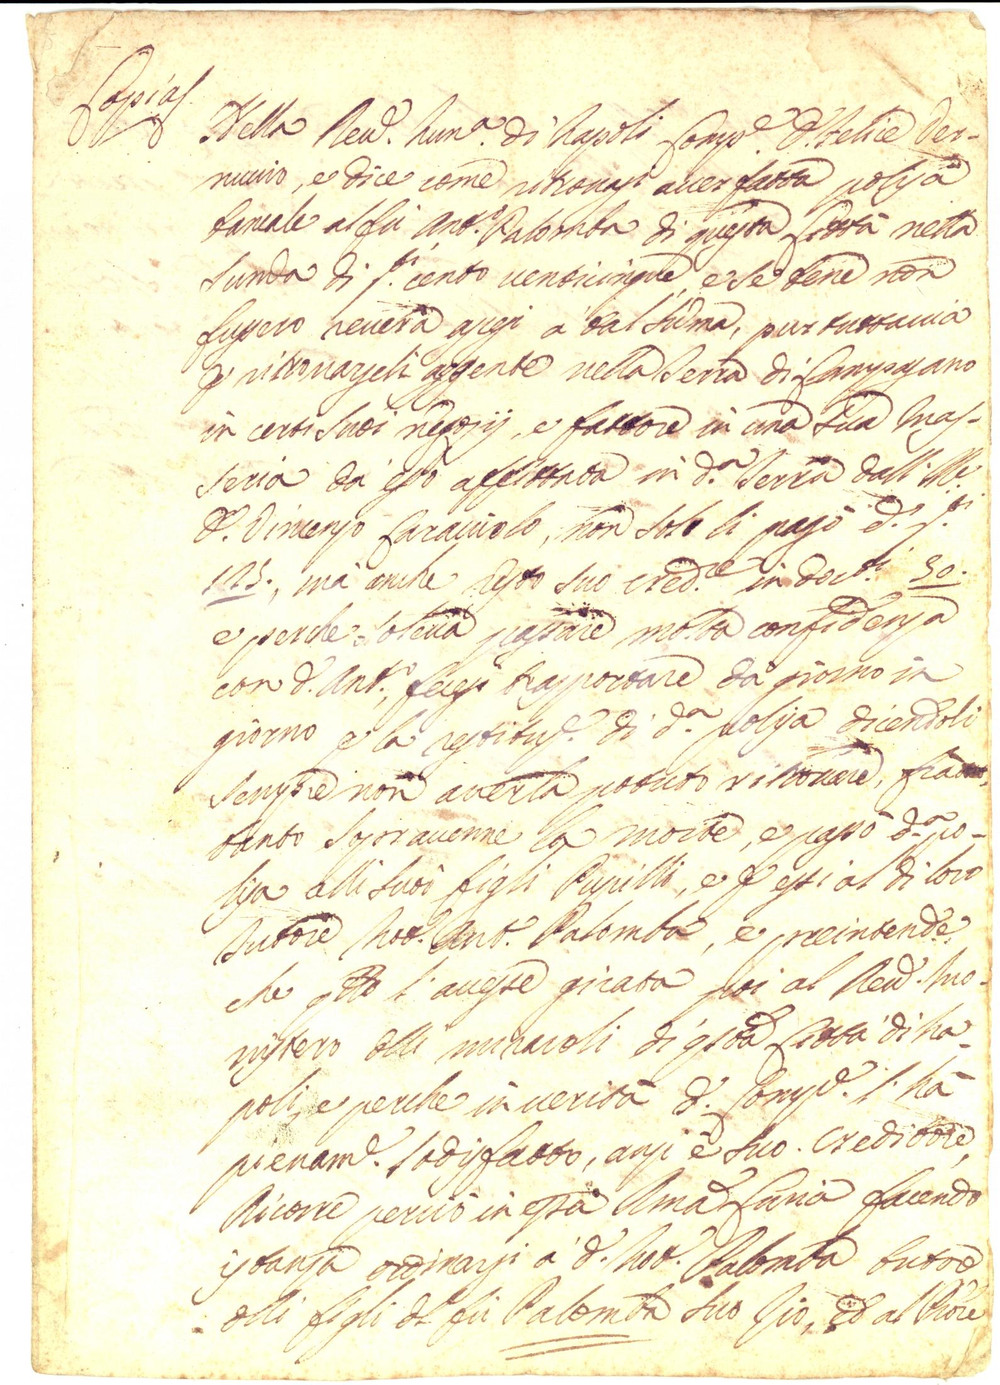 Copia
Nella Rev.ª Nun.ª di Napoli Comp.e D. Felice Ver-
nucio, e dice come ritrovasi aver fatta polisa
bancale al fù Ant.º Palomba di questa Città nella
summa di d.ti cento venticinque, e se bene non
fussero nevera assi a tal summa, pur tuttavia
p ritrovarseli aggente nella Terra di Campagano
in certi suoi negozij, e fattore in una sua Mas-
seria da esso affittata in d.ª Terra dall' Ill.
D. Vincenzo Caracciolo, non solo li pagò d.i d.ti
125., mà anche restò suo cred.re in doc.ti 30.
e perche soleva passare molta confidenza
con d. Ant.º, fecesi trasportare dà giorno in
giorno p la restituz.e di d.ª polisa dicendoli
sempre non averla potuto ritrovare, frat-
tanto sopravenne la morte, e passò d.ª po-
lisa alli suoi figli Pupilli, e p essi al di loro
tutore Not.r Ant.º Palomba, e preintende,
che q.sto l' avesse girata poi al Rev.º Mo-
nistero delli miracoli di q.sta Città di Na-
poli, e perche in verità d.º Comp.e l' hà
pienam.e sodisfatto, anzi è suo Creditore,
Ricorre perciò in essa R.ma Curia facendo
istanza ordinarsi a d.º Not.r Palomba tutore
delli figli del fù Palomba suo Zio, ed al Priore